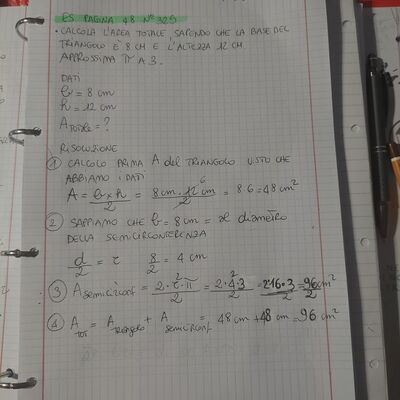 ES PAGINA 48 N° 325
• CALCOLA L'AREA TOTALE, SAPENDO CHE LA BASE DEL
TRIANGOLO È 8 CM E L'ALTEZZA 12 CM.
APPROSSIMA π A 3.
DATI
b = 8 cm
h = 12 cm
A TOTALE = ?
RISOLUZIONE
① CALCOLO PRIMA A del TRIANGOLO VISTO CHE
ABBIAMO I DATI
A = b x h / 2 = 8 cm · 12 cm / 2 = 8·6 = 48 cm²
② SAPPIAMO CHE b = 8 cm = al diametro
DELLA SEMICIRCONFERENZA
d/2 = r 8/2 = 4 cm
③ A semicirconf = 2·r²·π / 2 = 2·4²·3 / 2 = 2·16·3 / 2 = 96/2 cm²
④ A TOT = A triangolo + A semicirconf = 48 cm + 48 cm = 96 cm²